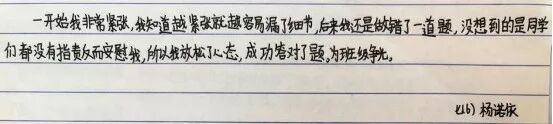 一开始我非常紧张,我知道越紧张就越容易漏了细节,后来我还是做错了一道题,没想到的是同学
们都没有指责反而安慰我,所以我放松了心态,成功答对了题,为班级争光。
七(6) 杨诺依